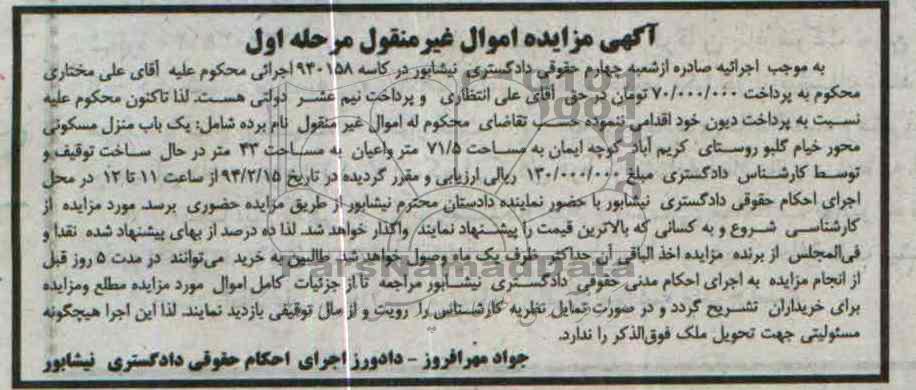 آگهی مزایده اموال غیر منقول مرحله اول
به موجب اجرائیه صادره ازشعبه چهارم حقوقی دادگستری نیشابور در کلاسه ۹۴۰۱۵۸ اجرائی محکوم علیه آقای علی مختاری
محکوم به پرداخت ۷۰/۰۰۰/۰۰۰ تومان در حق آقای علی انتظاری و پرداخت نیم عشر دولتی هست. لذا تاکنون محکوم علیه
نسبت به پرداخت دیون خود اقدامی ننموده حسب تقاضای محکوم له اموال غیر منقول نام برده شامل: یک باب منزل مسکونی
محور خیام گلبو روستای کریم آباد کوچه ایمان به مساحت ۷۱/۵ متر واعیان به مساحت ۴۳ متر در حال ساخت توقیف و
توسط کارشناس دادگستری مبلغ ۱۳۰/۰۰۰/۰۰۰ ریالی ارزیابی و مقرر گردیده در تاریخ ۹۴/۲/۱۵ از ساعت ۱۱ تا ۱۲ در محل
اجرای احکام حقوقی دادگستری نیشابور با حضور نماینده دادستان محترم نیشابور از طریق مزایده حضوری برسد. مورد مزایده از
کارشناسی شروع و به کسانی که بالاترین قیمت را پیشنهاد نمایند واگذار خواهد شد. لذا ده درصد از بهای پیشنهاد شده نقدا و
فی‌المجلس از برنده مزایده اخذ الباقی آن حداکثر ظرف یک ماه وصول خواهد شد. طالبین به خرید می‌توانند در مدت ۵ روز قبل
از انجام مزایده به اجرای احکام مدنی حقوقی دادگستری نیشابور مراجعه تا از جزئیات کامل اموال مورد مزایده مطلع ومزایده
برای خریداران تشریح گردد و در صورت تمایل نظریه کارشناس را رویت و از مال توقیفی بازدید نمایند. لذا این اجرا هیچگونه
مسئولیتی جهت تحویل ملک فوق‌الذکر را ندارد.
جواد مهرافروز - دادورز اجرای احکام حقوقی دادگستری نیشابور
ParsNamadData